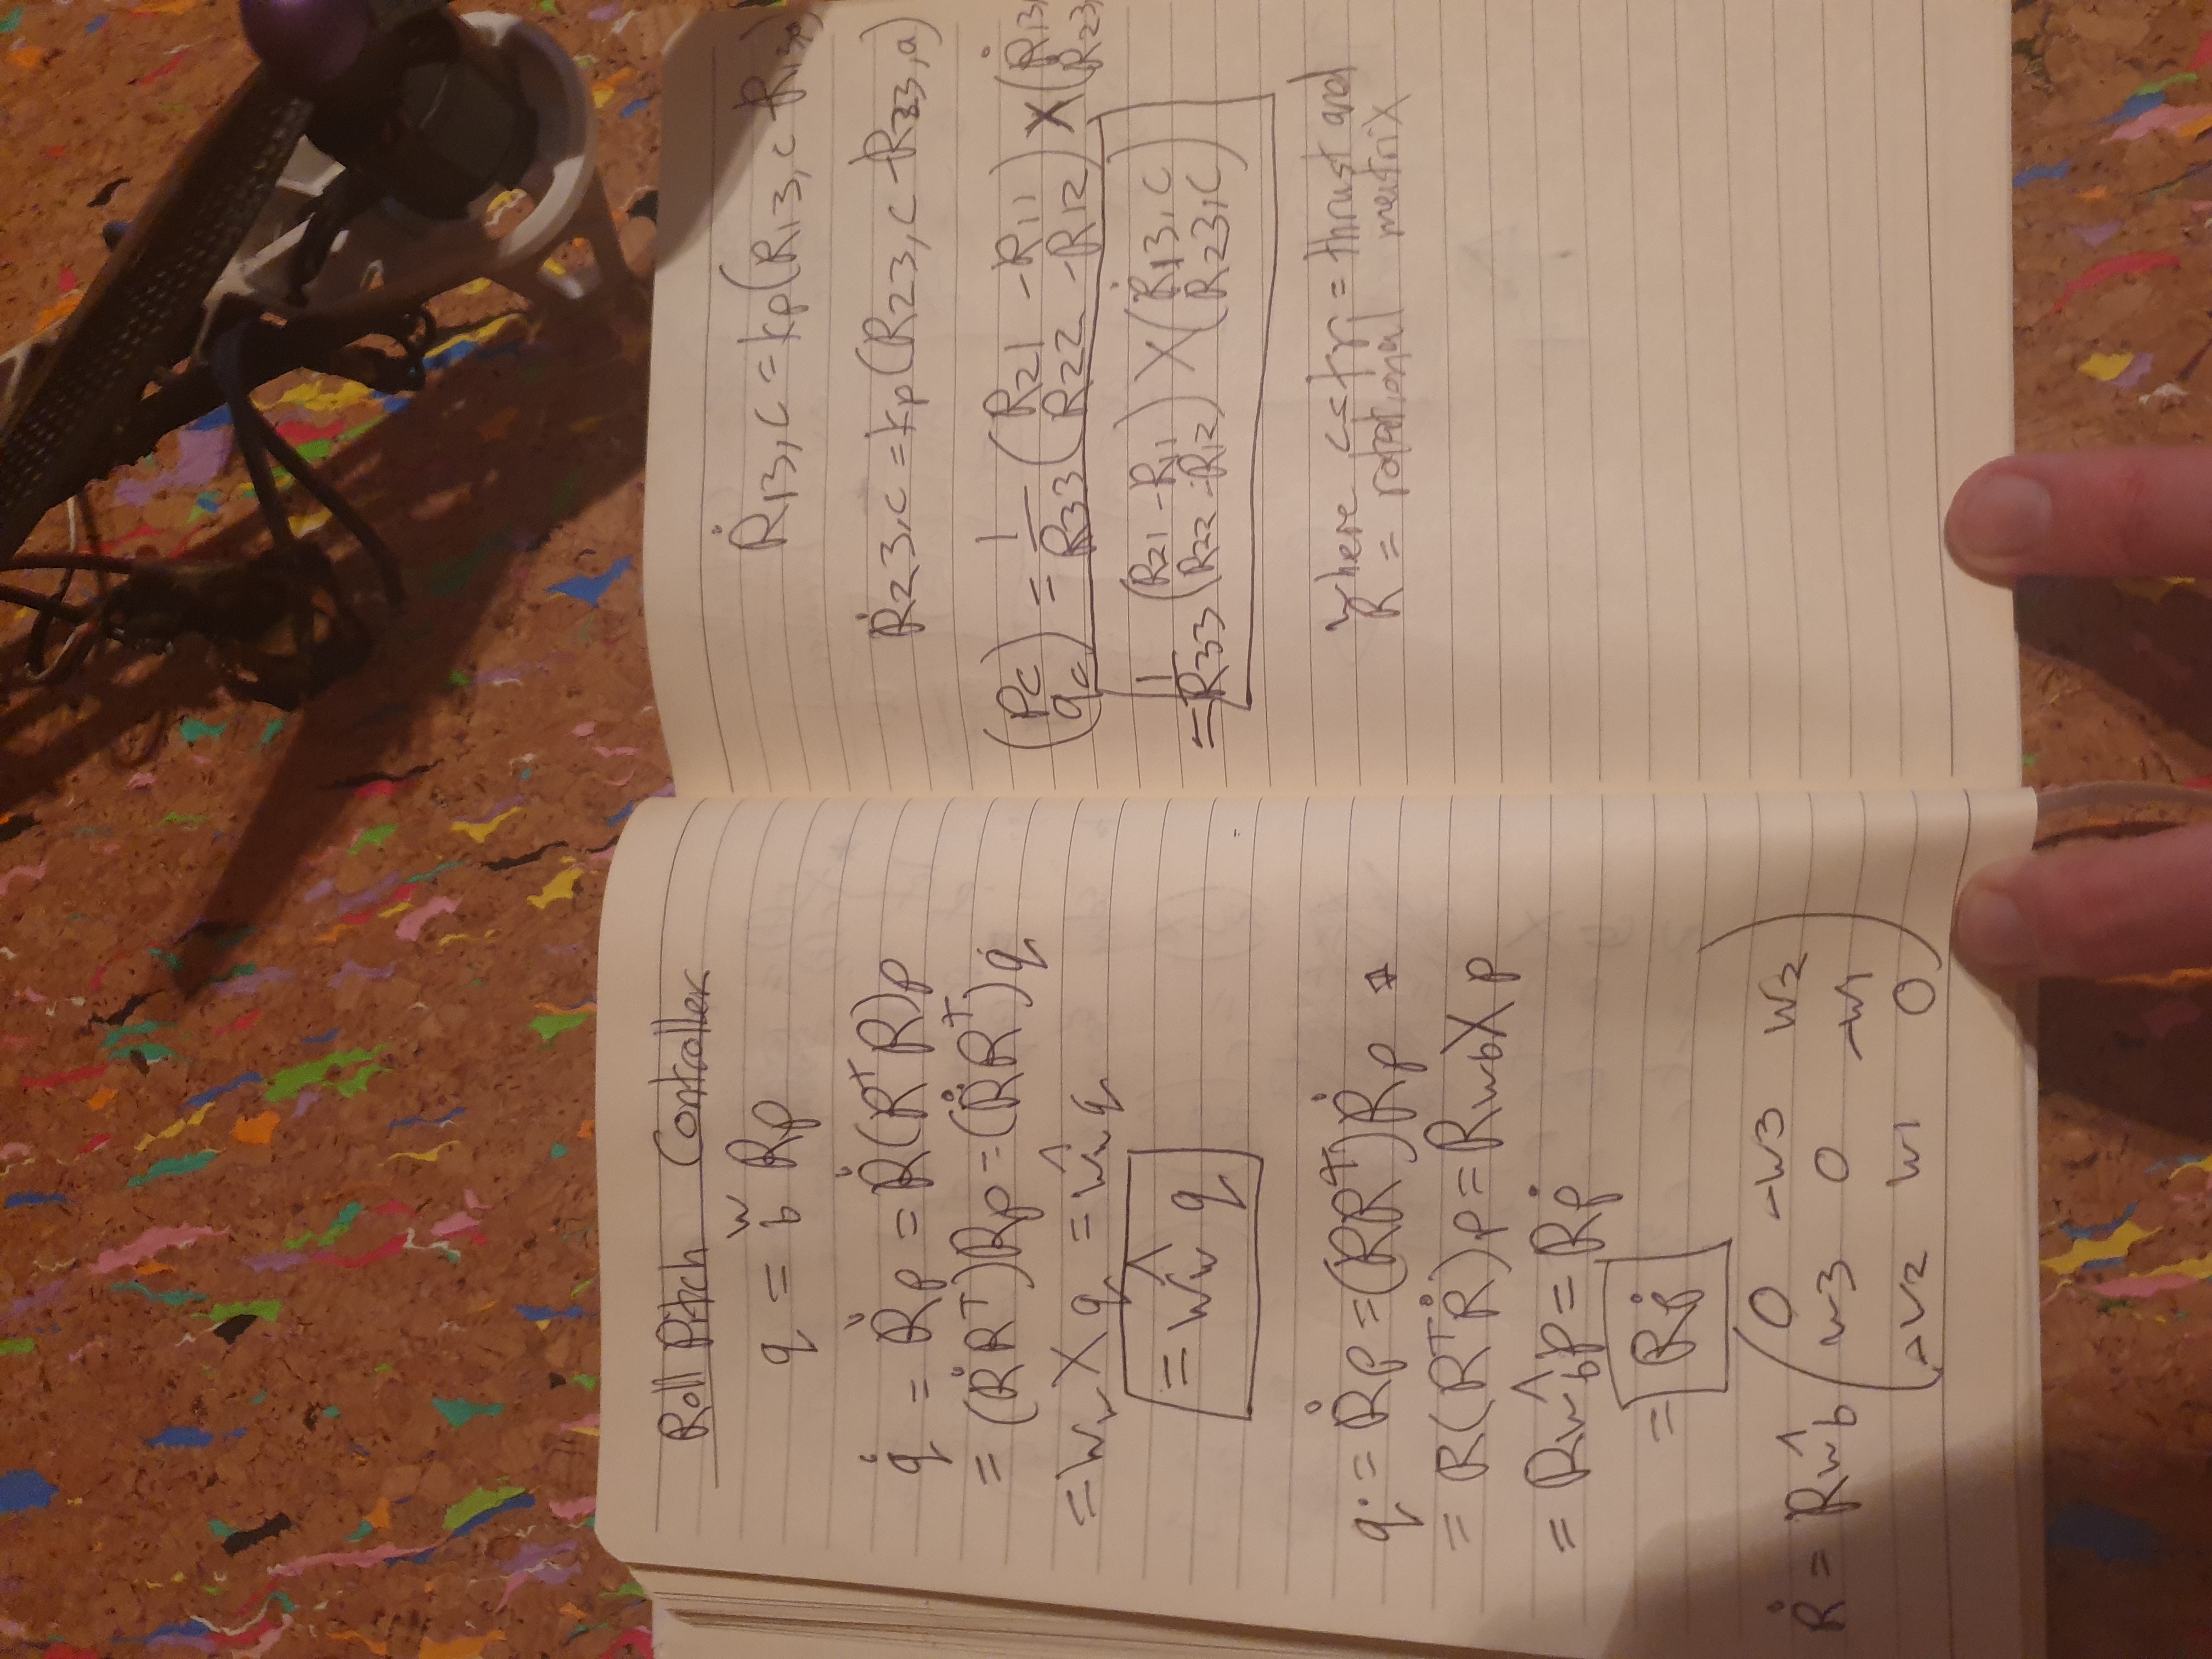 Roll Pitch Controller
q = ʷ_b Rp
q̇ = Ṙp = Ṙ(RᵀR)p
= (ṘRᵀ)Rp = (ṘRᵀ)q
= w_w X q = ŵ_w q
= ŵ_w q
q̇ = Ṙp = (RRᵀ)Ṙp
= R(RᵀṘ)p = Rw_b X p
= Rŵ_b p = Rṗ
= Rṗ
Ṙ = Rŵ_b ( 0 -w3 w2
w3 0 -w1
-w2 w1 0 )
Ṙ13,c = kp(R13,c - R13,a)
Ṙ23,c = kp(R23,c - R23,a)
(pc qc) = 1/R33 (R21 -R11 R22 -R12) X (Ṙ13, R23,
= 1/R33 (R21 -R11 R22 -R12) X (Ṙ13,c R23,c)
where = thrust and
R = rotational matrix